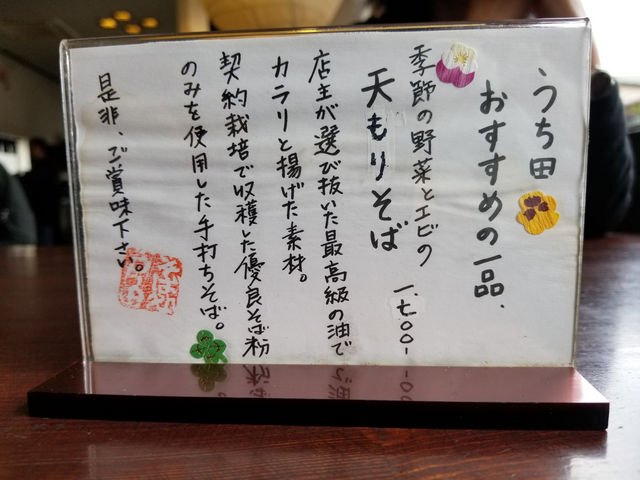 うち田
おすすめの一品、
季節の野菜とエビの
天もりそば
一、七〇〇-
店主が選び抜いた最高級の油で
カラリと揚げた素材。
契約栽培で収穫した優良そば粉
のみを使用した手打ちそば。
是非、ご賞味下さい。